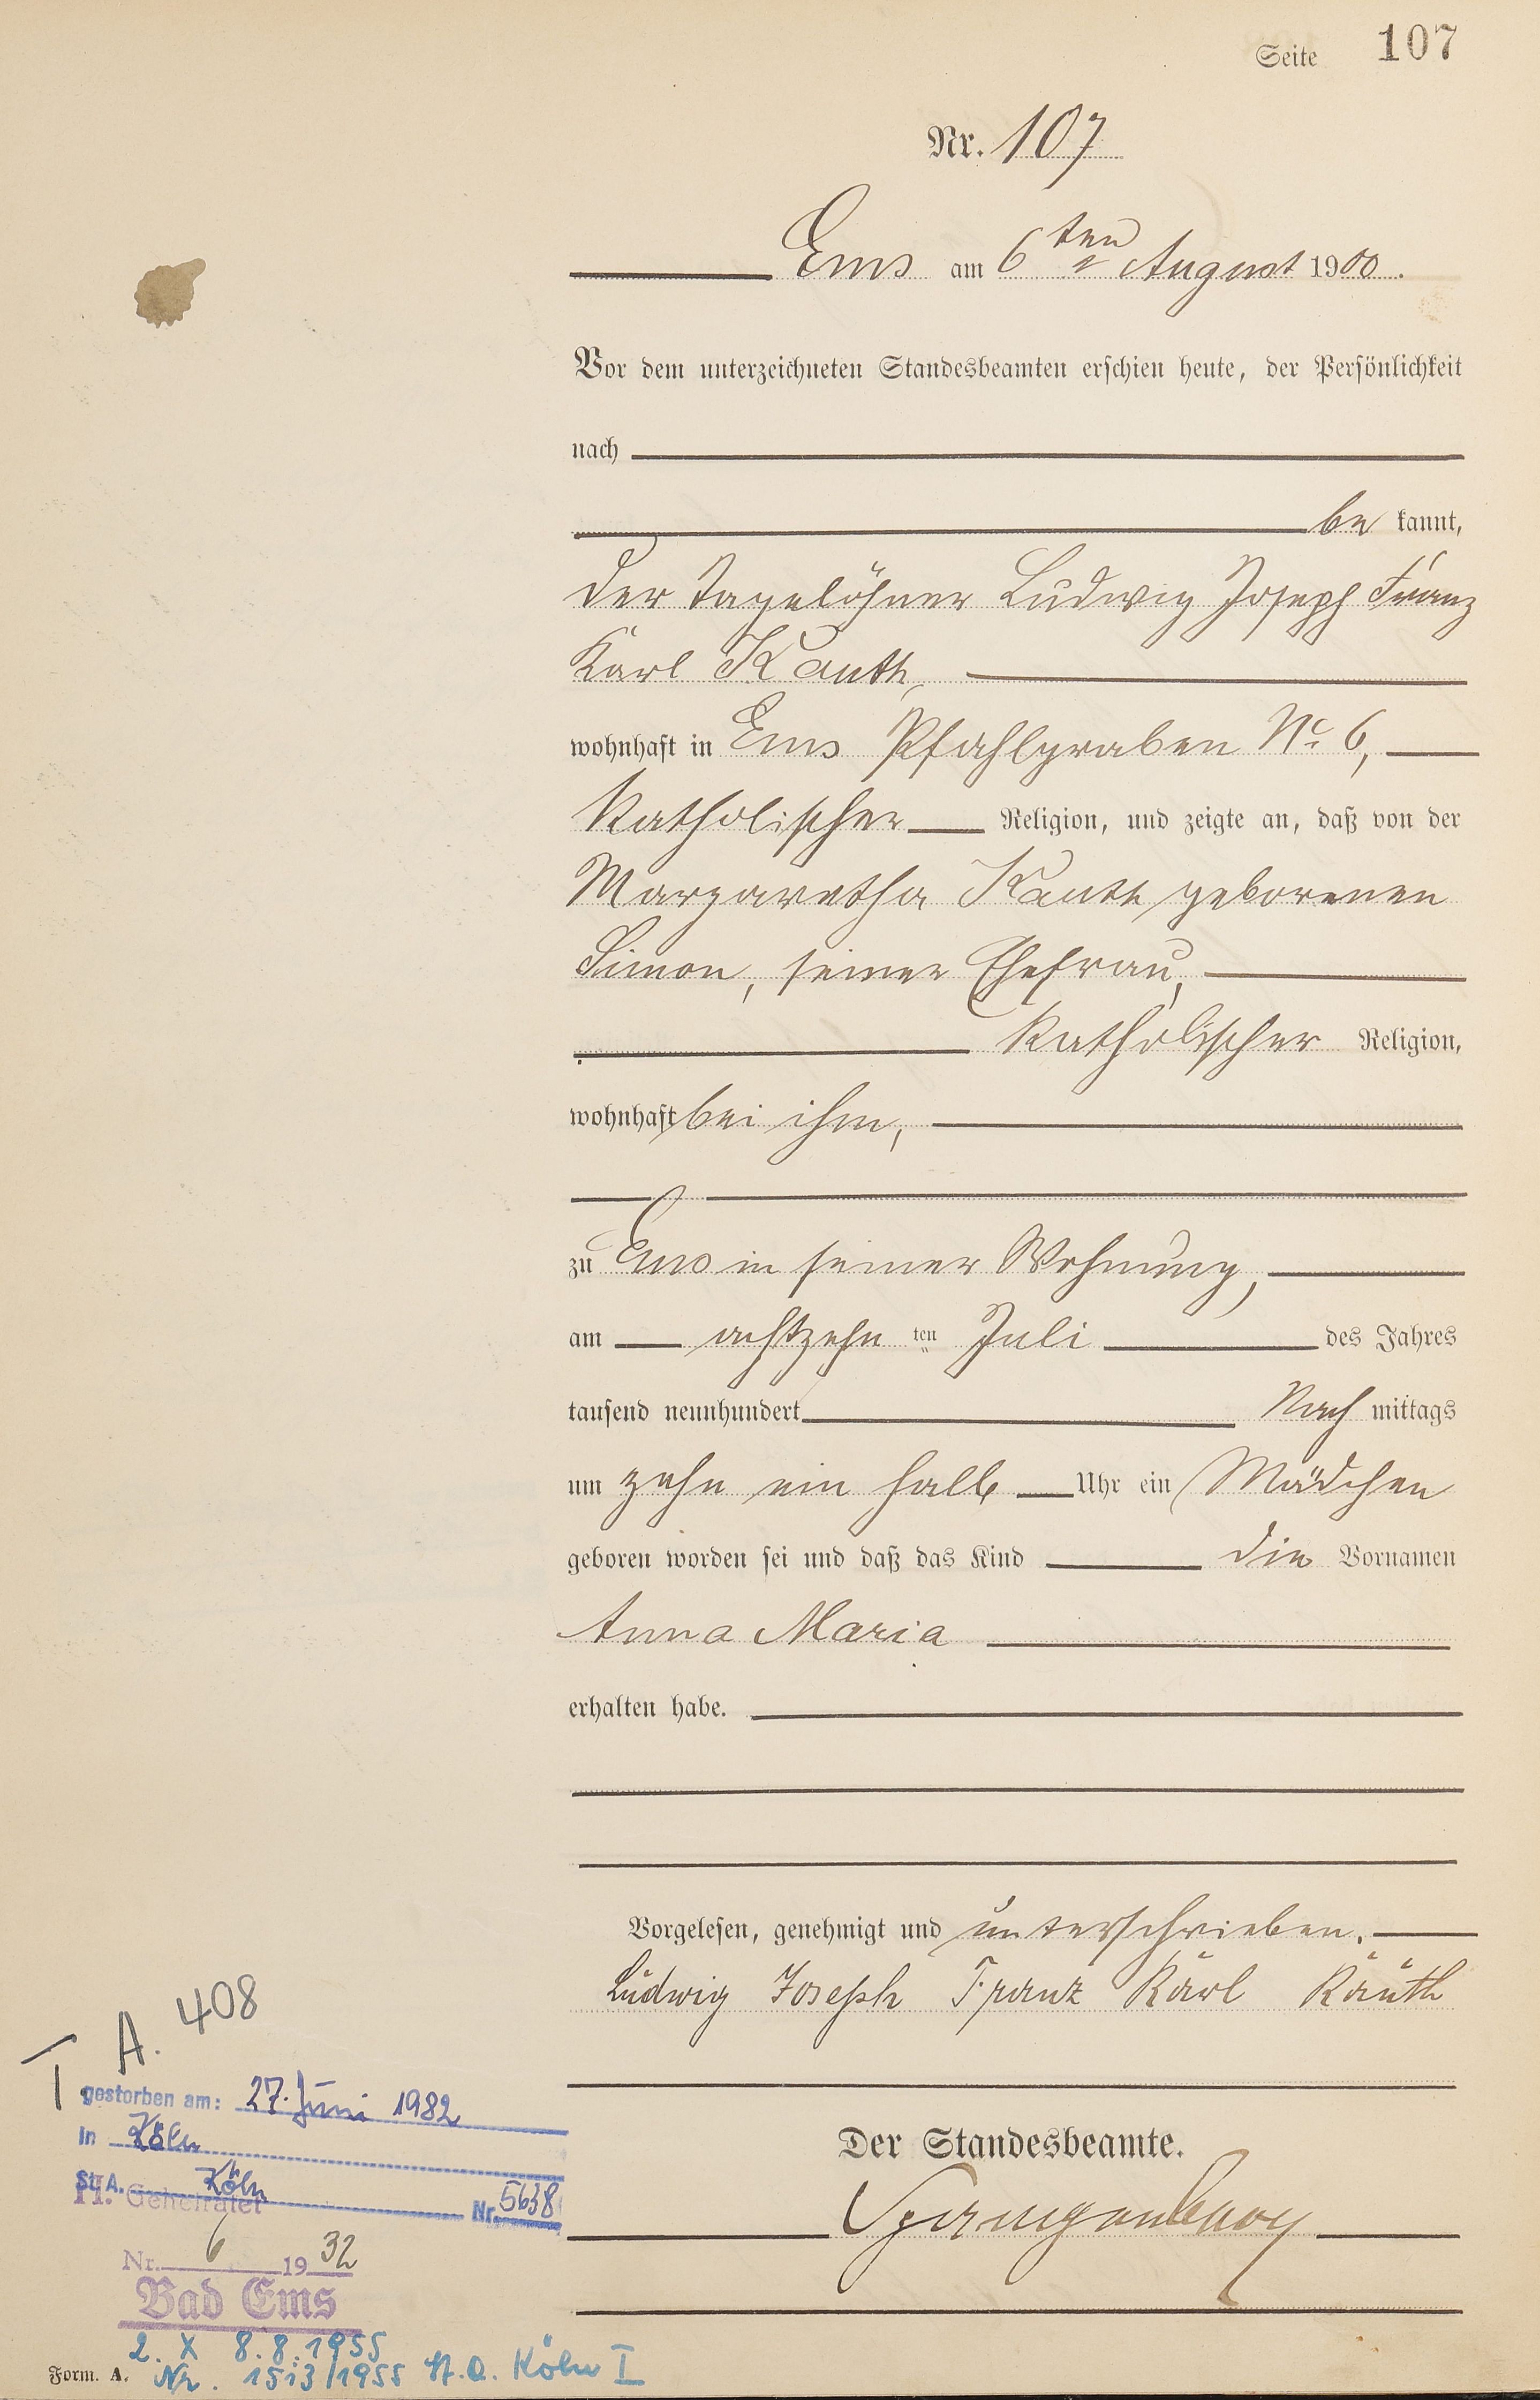 Seite 107
Nr. 107
Ems am 6ten August 1900.
Vor dem unterzeichneten Standesbeamten erschien heute, der Persönlichkeit
nach
be kannt,
der Tagelöhner Ludwig Joseph Franz
Karl Kauth,
wohnhaft in Ems Pfahlgraben No 6,
katholischer Religion, und zeigte an, daß von der
Margaretha Kauth geborenen
Simon, seiner Ehefrau,
katholischer Religion,
wohnhaft bei ihm,
zu Ems in seiner Wohnung,
am achtzehn ten Juli des Jahres
tausend neunhundert Nach mittags
um zehn ein halb Uhr ein Mädchen
geboren worden sei und daß das Kind die Vornamen
Anna Maria
erhalten habe.
Vorgelesen, genehmigt und unterschrieben.
Ludwig Joseph Franz Karl Kauth
Der Standesbeamte.
A. 408
gestorben am: 27. Juni 1982
in Köln
St. A. Köln Nr. 5638
H. Geheiratet
Nr. 6 1932
Bad Ems
2. X 8.8.1955
Nr. 1513/1955 St.A. Köln I
Form. A.